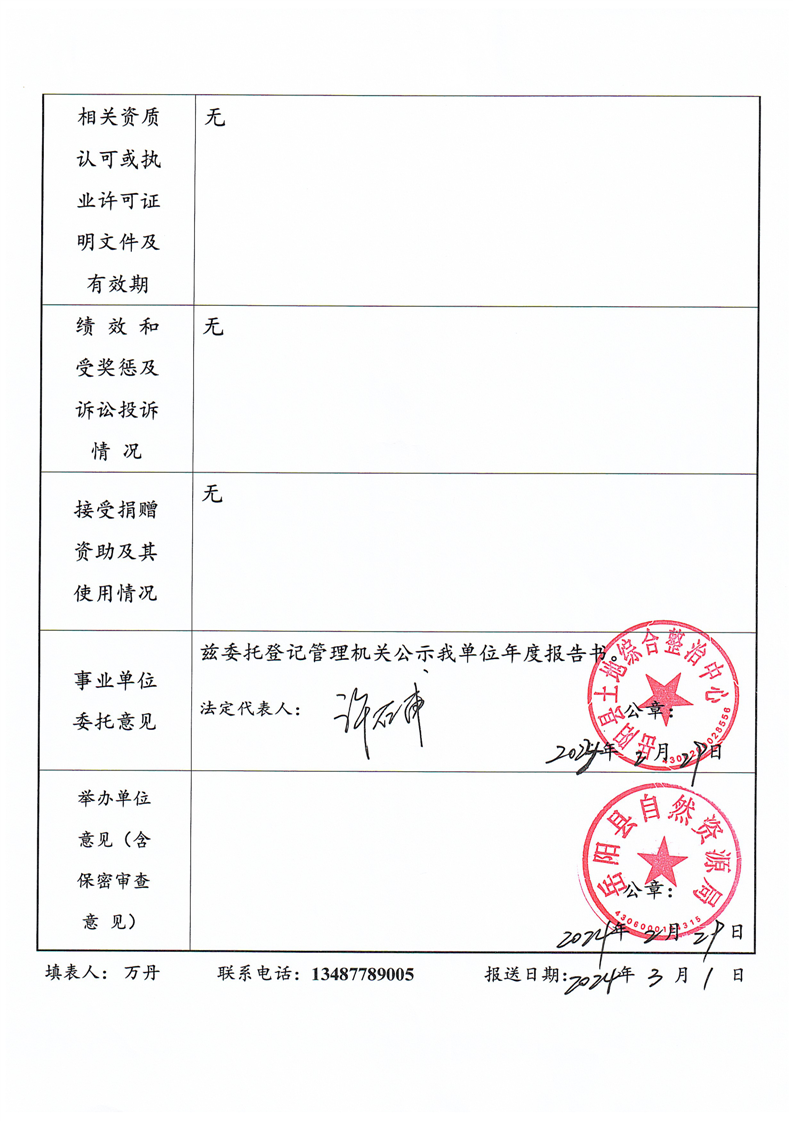 相关资质
认可或执
业许可证
明文件及
有效期
无
绩 效 和
受奖惩及
诉讼投诉
情 况
无
接受捐赠
资助及其
使用情况
无
事业单位
委托意见
兹委托登记管理机关公示我单位年度报告书。
法定代表人：
公章：
2024年 2月 29日
岳阳县土地综合整治中心
举办单位
意见（含
保密审查
意 见）
岳阳县自然资源局
公章：
2024年 2月 29日
填表人： 万丹 联系电话：13487789005 报送日期：2024年 3月 1日